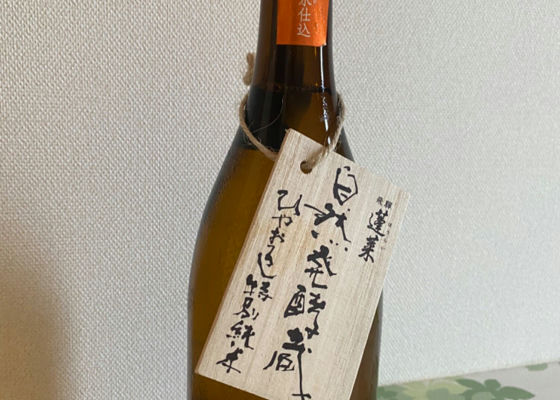 水仕込
飛騨
蓬莱
自然発酵蔵
ひやおろし特別純米